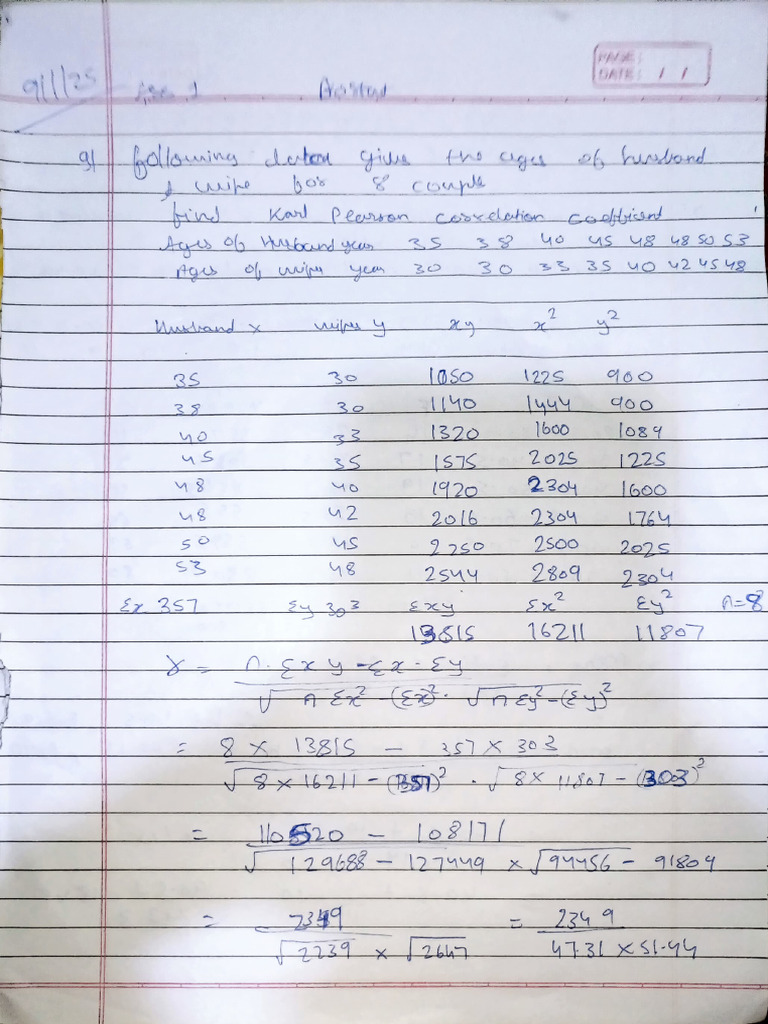 PAGE:
DATE: / /
9/1/25
Q1 Following data gives the ages of husband
& wife for 8 couple
find Karl Pearson correlation coefficient
Ages of Husband year 35 38 40 45 48 48 50 53
Ages of wife year 30 30 33 35 40 42 45 48
Husband x wife y xy x² y²
35 30 1050 1225 900
38 30 1140 1444 900
40 33 1320 1600 1089
45 35 1575 2025 1225
48 40 1920 2304 1600
48 42 2016 2304 1764
50 45 2250 2500 2025
53 48 2544 2809 2304
Σx 357 Σy 303 Σxy Σx² Σy² n=8
13815 16211 11807
r = n·Σxy - Σx·Σy
√nΣx² - (Σx)² · √nΣy² - (Σy)²
= 8 × 13815 - 357 × 303
√8 × 16211 - (357)² · √8 × 11807 - (303)²
= 110520 - 108171
√129688 - 127449 × √94456 - 91804
= 2349 = 2349
√2239 × √2647 47.31 × 51.44